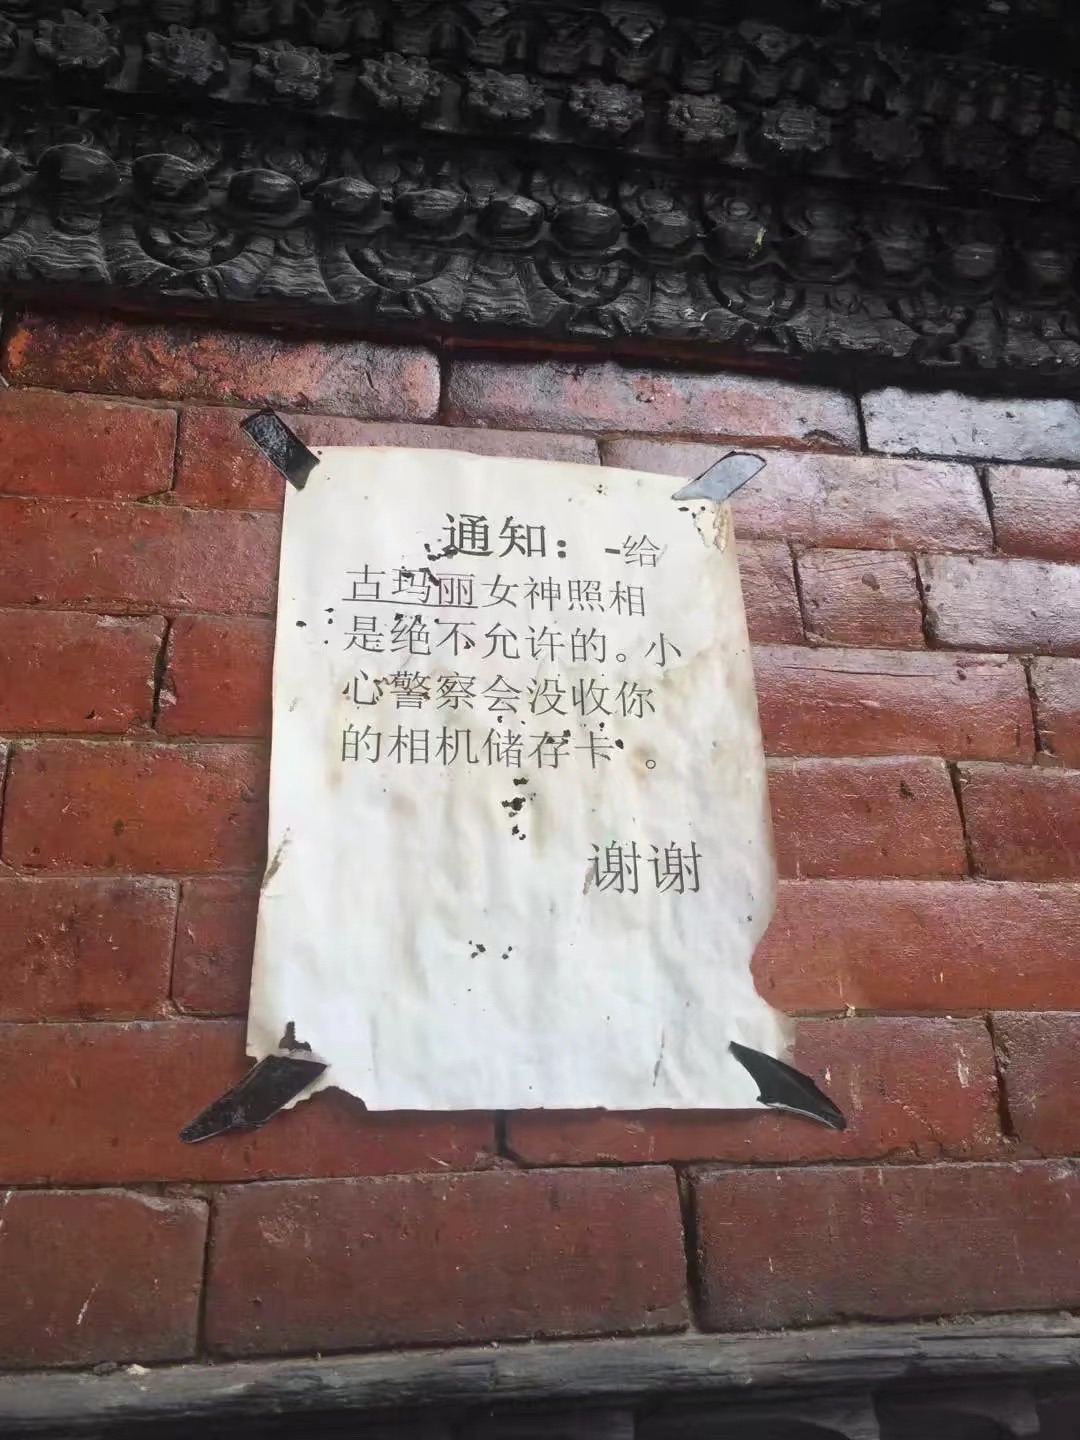 通知：-给
古玛丽女神照相
是绝不允许的。小
心警察会没收你
的相机储存卡 。
谢谢